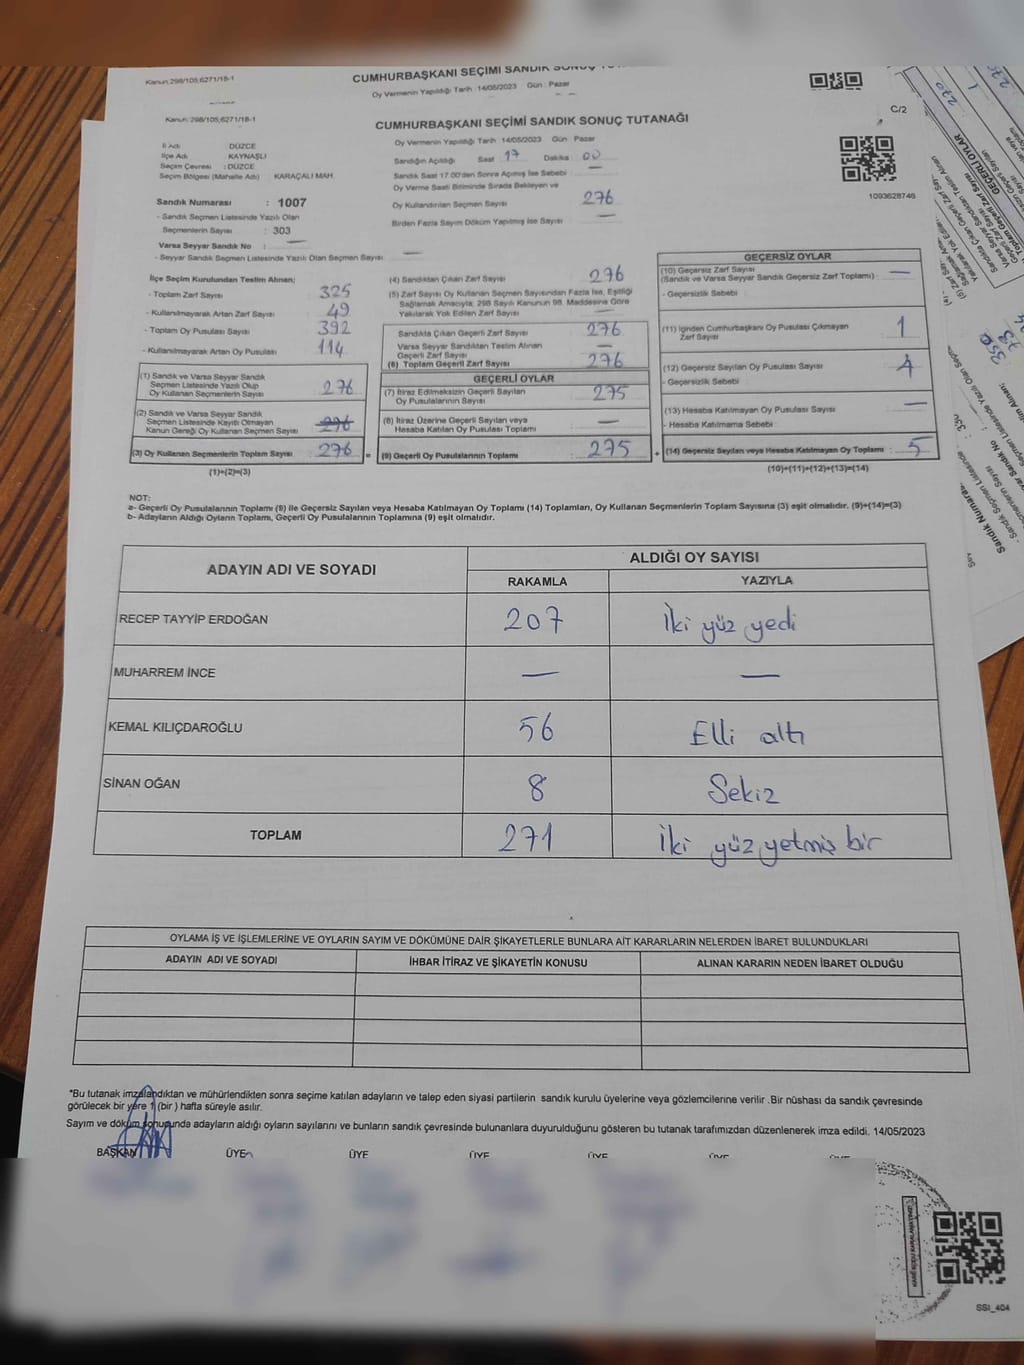 Kanun:298/105;6271/18-1
CUMHURBAŞKANI SEÇİMİ SANDIK SONUÇ
Oy Vermenin Yapıldığı Tarih :14/05/2023 Gün : Pazar
C/2
Kanun: 298/105;6271/18-1
CUMHURBAŞKANI SEÇİMİ SANDIK SONUÇ TUTANAĞI
Oy Vermenin Yapıldığı Tarih 14/05/2023 Gün : Pazar
İl Adı : DÜZCE
İlçe Adı : KAYNAŞLI
Seçim Çevresi : DÜZCE
Seçim Bölgesi (Mahalle Adı) : KARAÇALI MAH.
Sandığın Açıldığı Saat 17 Dakika 00
Sandık Saat 17.00'den Sonra Açımış İse Sebebi
Oy Verme Saati Bitiminde Sırada Bekleyen ve
Oy Kullandırılan Seçmen Sayısı 276
Birden Fazla Sayım Döküm Yapılmış İse Sayısı —
1093628746
Sandık Numarası : 1007
- Sandık Seçmen Listesinde Yazılı Olan
Seçmenlerin Sayısı : 303
Varsa Seyyar Sandık No : —
- Seyyar Sandık Seçmen Listesinde Yazılı Olan Seçmen Sayısı : —
İlçe Seçim Kurulundan Teslim Alınan;
- Toplam Zarf Sayısı 325
- Kullanılmayarak Artan Zarf Sayısı 49
- Toplam Oy Pusulası Sayısı 392
- Kullanılmayarak Artan Oy Pusulası 114
(1) Sandık ve Varsa Seyyar Sandık
Seçmen Listesinde Yazılı Olup
Oy Kullanan Seçmen Sayısı 276
(2) Sandık ve Varsa Seyyar Sandık
Seçmen Listesinde Kayıtlı Olmayan
Kanun Gereği Oy Kullanan Seçmen Sayısı 276
(3) Oy Kullanan Seçmenlerin Toplam Sayısı 276
(1)+(2)=(3)
(4) Sandıktan Çıkan Zarf Sayısı 276
(5) Zarf Sayısı Oy Kullanan Seçmen Sayısından Fazla İse, Eşitliği
Sağlamak Amacıyla; 298 Sayılı Kanunun 98. Maddesine Göre
Yakılarak Yok Edilen Zarf Sayısı —
Sandıkta Çıkan Geçerli Zarf Sayısı 276
Varsa Seyyar Sandıktan Teslim Alınan
Geçerli Zarf Sayısı —
(6) Toplam Geçerli Zarf Sayısı 276
GEÇERLİ OYLAR
(7) İtiraz Edilmeksizin Geçerli Sayılan
Oy Pusulalarının Sayısı 275
(8) İtiraz Üzerine Geçerli Sayılan veya
Hesaba Katılan Oy Pusulası Toplamı —
(9) Geçerli Oy Pusulalarının Toplamı 275
GEÇERSİZ OYLAR
(10) Geçersiz Zarf Sayısı
(Sandık ve Varsa Seyyar Sandık Geçersiz Zarf Toplamı) —
- Geçersizlik Sebebi
(11) İçinden Cumhurbaşkanı Oy Pusulası Çıkmayan
Zarf Sayısı 1
(12) Geçersiz Sayılan Oy Pusulası Sayısı 4
- Geçersizlik Sebebi
(13) Hesaba Katılmayan Oy Pusulası Sayısı —
- Hesaba Katılmama Sebebi
(14) Geçersiz Sayılan veya Hesaba Katılmayan Oy Toplamı 5
(10)+(11)+(12)+(13)=(14)
NOT:
a- Geçerli Oy Pusulalarının Toplamı (9) ile Geçersiz Sayılan veya Hesaba Katılmayan Oy Toplamı (14) Toplamları, Oy Kullanan Seçmenlerin Toplam Sayısına (3) eşit olmalıdır. (9)+(14)=(3)
b- Adayların Aldığı Oyların Toplamı, Geçerli Oy Pusulalarının Toplamına (9) eşit olmalıdır.
ADAYIN ADI VE SOYADI ALDIĞI OY SAYISI
RAKAMLA YAZIYLA
RECEP TAYYİP ERDOĞAN 207 İki yüz yedi
MUHARREM İNCE — —
KEMAL KILIÇDAROĞLU 56 Elli altı
SİNAN OĞAN 8 Sekiz
TOPLAM 271 İki yüz yetmiş bir
OYLAMA İŞ VE İŞLEMLERİNE VE OYLARIN SAYIM VE DÖKÜMÜNE DAİR ŞİKAYETLERLE BUNLARA AİT KARARLARIN NELERDEN İBARET BULUNDUKLARI
ADAYIN ADI VE SOYADI İHBAR İTİRAZ VE ŞİKAYETİN KONUSU ALINAN KARARIN NEDEN İBARET OLDUĞU
*Bu tutanak imzalandıktan ve mühürlendikten sonra seçime katılan adayların ve talep eden siyasi partilerin sandık kurulu üyelerine veya gözlemcilerine verilir .Bir nüshası da sandık çevresinde
görülecek bir yere 1 (bir ) hafta süreyle asılır.
Sayım ve döküm sonucunda adayların aldığı oyların sayılarını ve bunların sandık çevresinde bulunanlara duyurulduğunu gösteren bu tutanak tarafımızdan düzenlenerek imza edildi. 14/05/2023
BAŞKAN ÜYE ÜYE ÜYE ÜYE ÜYE ÜYE
SSI_404